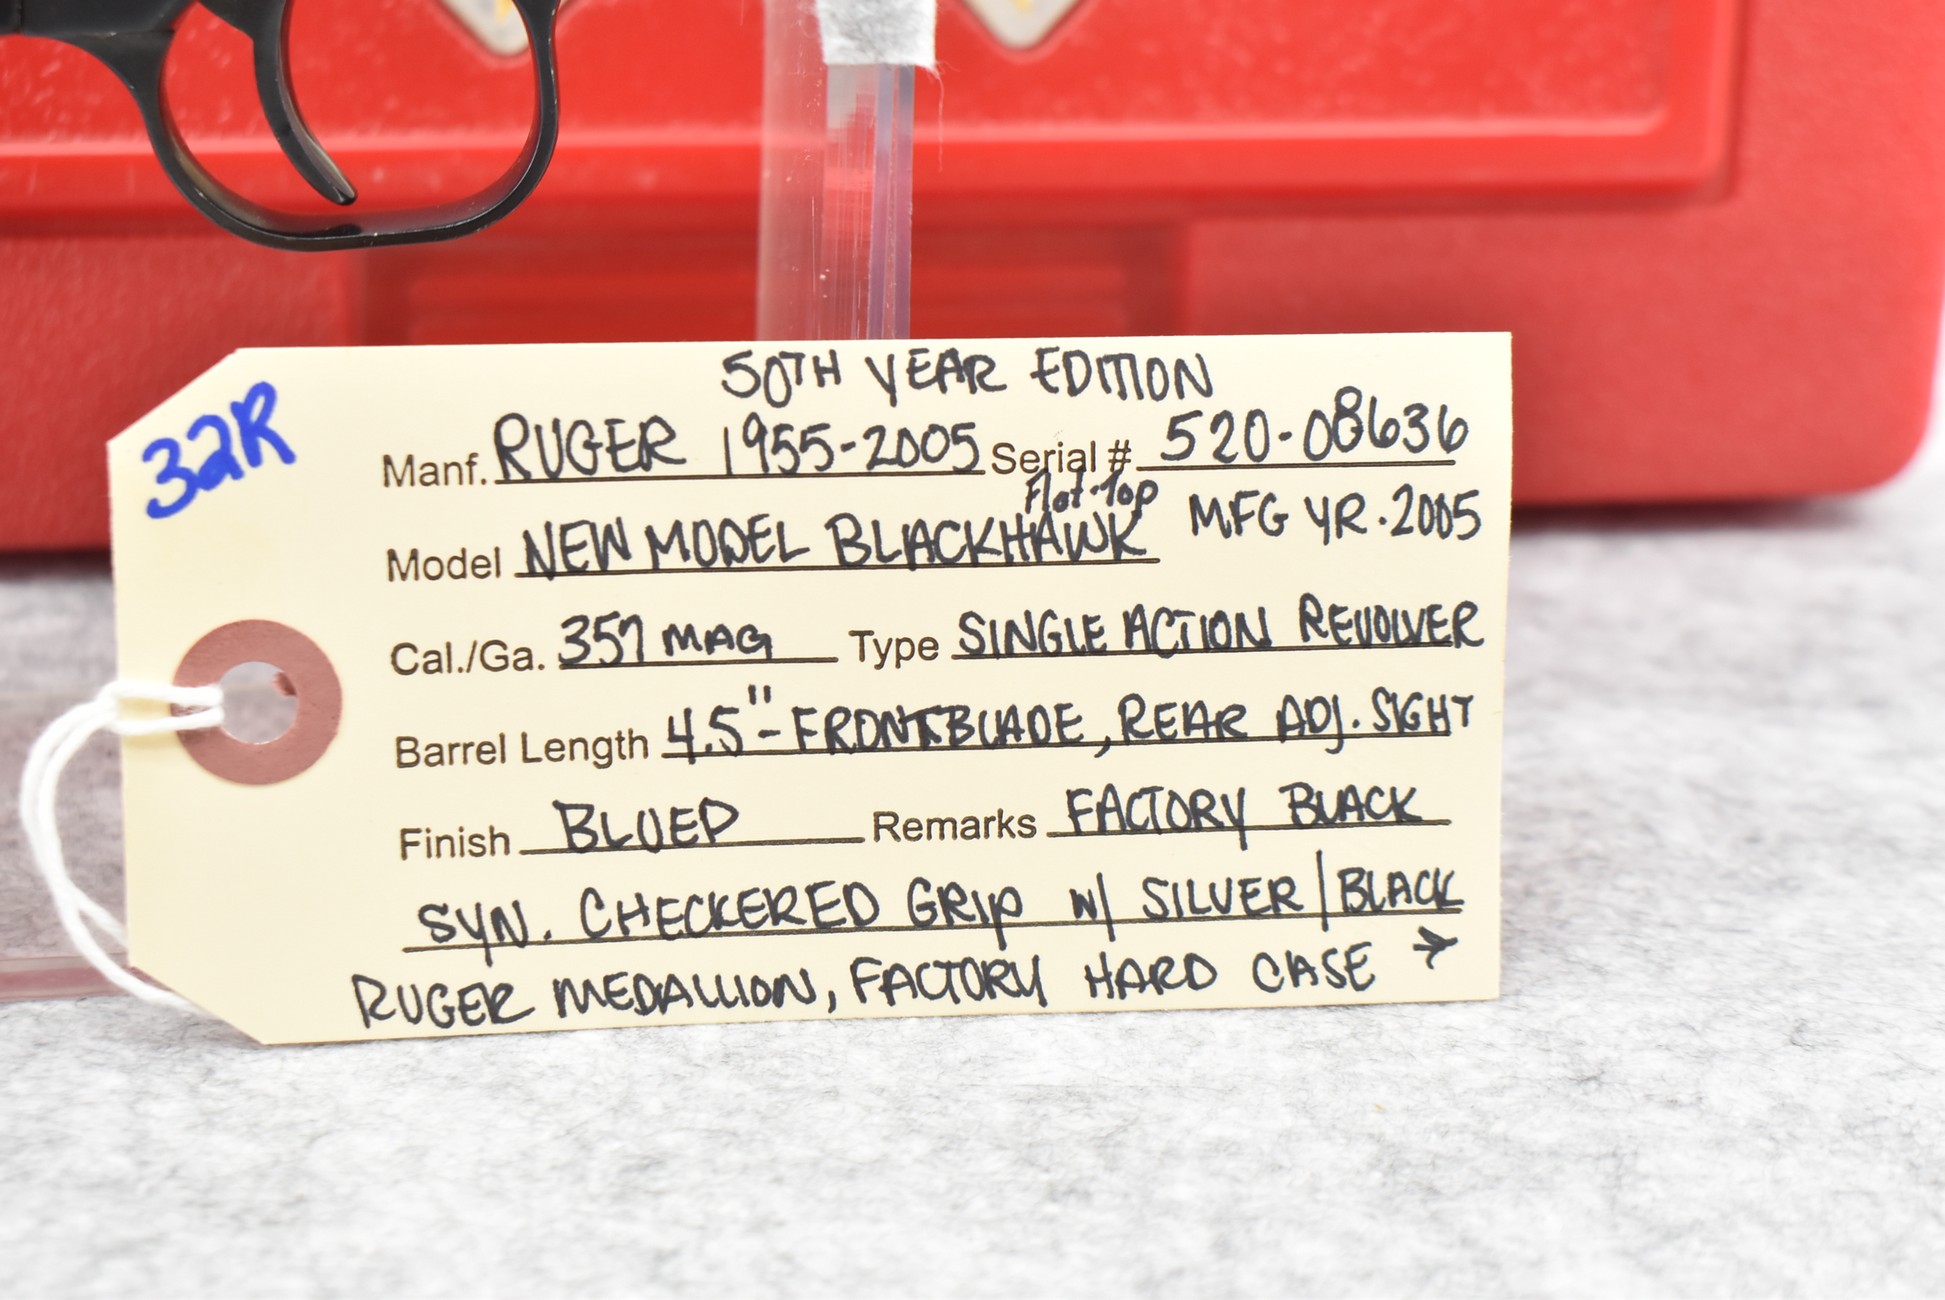 32R
50TH YEAR EDITION
Manf. RUGER 1955-2005 Serial # 520-08636
Flat-Top
Model NEW MODEL BLACKHAWK MFG YR. 2005
Cal./Ga. 357 MAG Type SINGLE ACTION REVOLVER
Barrel Length 4.5"- FRONT BLADE, REAR ADJ. SIGHT
Finish BLUED Remarks FACTORY BLACK
SYN. CHECKERED GRIP W/ SILVER/BLACK
RUGER MEDALLION, FACTORY HARD CASE →